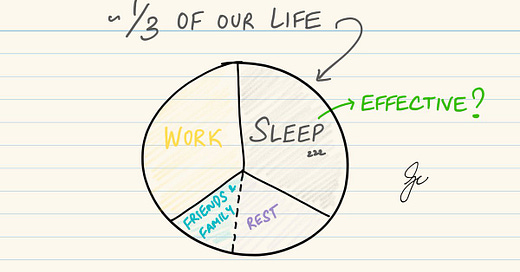 ~ 1/3 OF OUR LIFE
EFFECTIVE?
WORK
SLEEP
zzz
FRIENDS &
FAMILY
REST